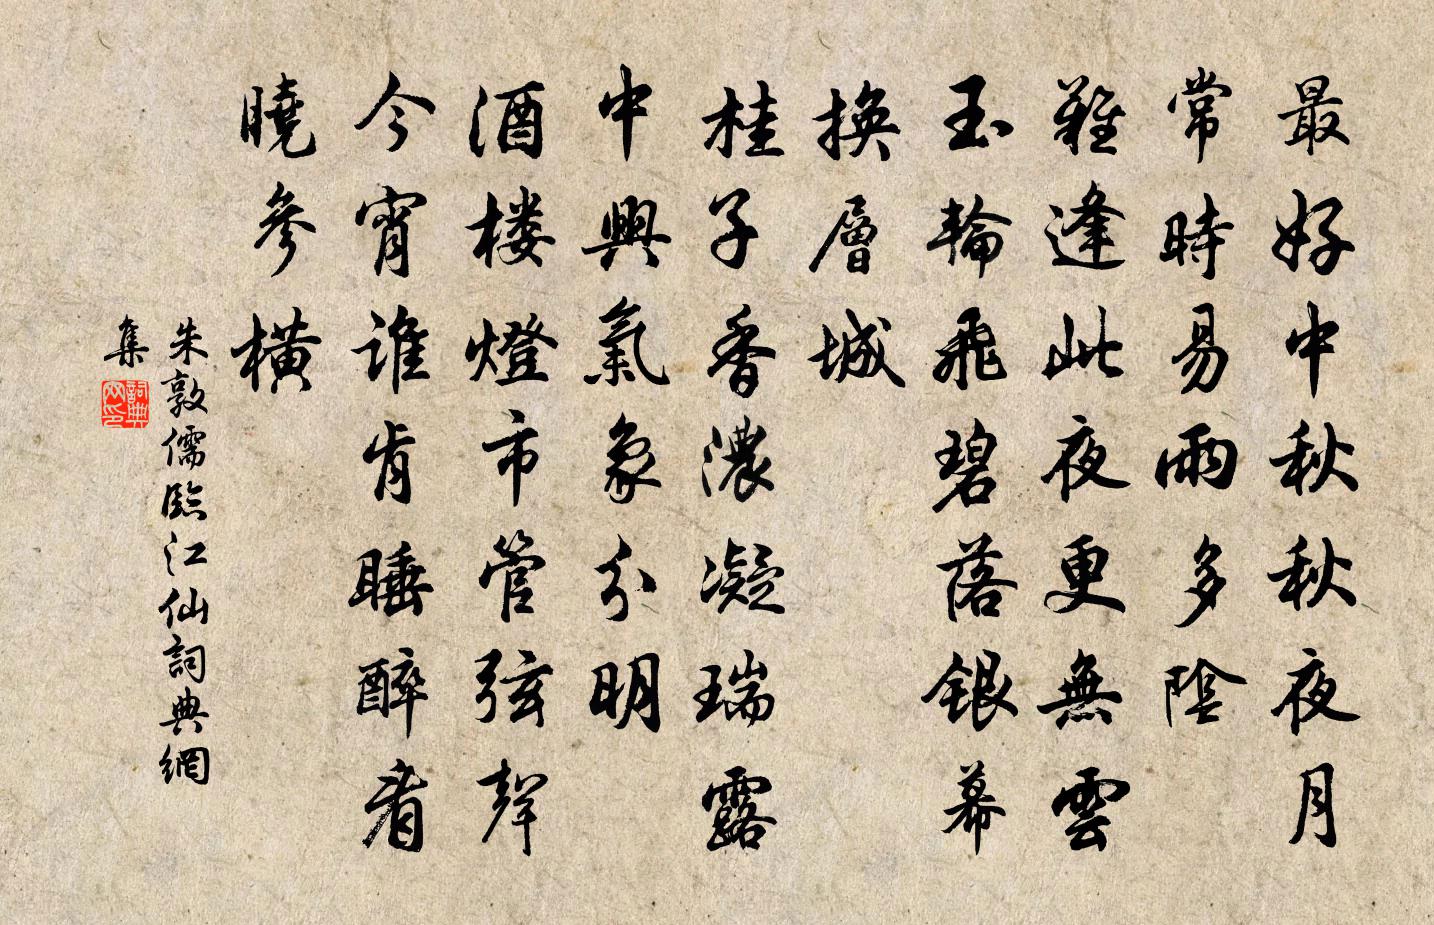 最好中秋秋夜月
常時易雨多陰
難逢此夜更無雲
玉輪飛碧落銀幕
換層城
桂子香濃凝瑞露
中興氣象分明
酒楼燈市管弦聲
今宵誰肯睡醉看
曉參橫
朱敦儒臨江仙詞典網
集
詞典
网印